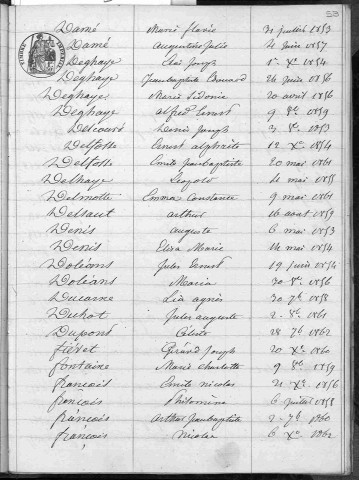 53
Damé Marie flavie 31 juillet 1853
Damé Augustine Julie 4 Juin 1857
Deghaye Joseph 1er Xre 1854
Deghaye Jeanbaptiste Edouard 24 Juin 1856
Deghaye Marie Sidonie 20 avril 1856
Deghaye alfred Ernest 9 8re 1859
Delcourt Denis Joseph 3 8re 1853
Delfosse Ernest alphrète 12 Xre 1854
Delfosse Emile Jeanbaptiste 20 mai 1861
Delhaye Léopold 4 mai 1855
Delmotte Emma Constance 9 mai 1861
Delsaut arthur 16 aout 1859
Denis auguste 6 mai 1853
Denis Elisa Marie 14 mai 1854
Doléans Jules Ernest 19 Juin 1854
Doléans Maria 30 8re 1856
Ducarne Lia agnès 30 7bre 1858
Duhot Jules auguste 2 8re 1861
Dupont Céleste 28 7bre 1862
fiévet Gérard Joseph 20 Xre 1860
fontaine Marie Charlotte 9 8re 1859
françois Emile nicolas 21 Xre 1856
françois Philomine 6 Juillet 1858
françois Arthur Jeanbaptiste 2 7bre 1860
françois Nicolas 6 Xre 1862